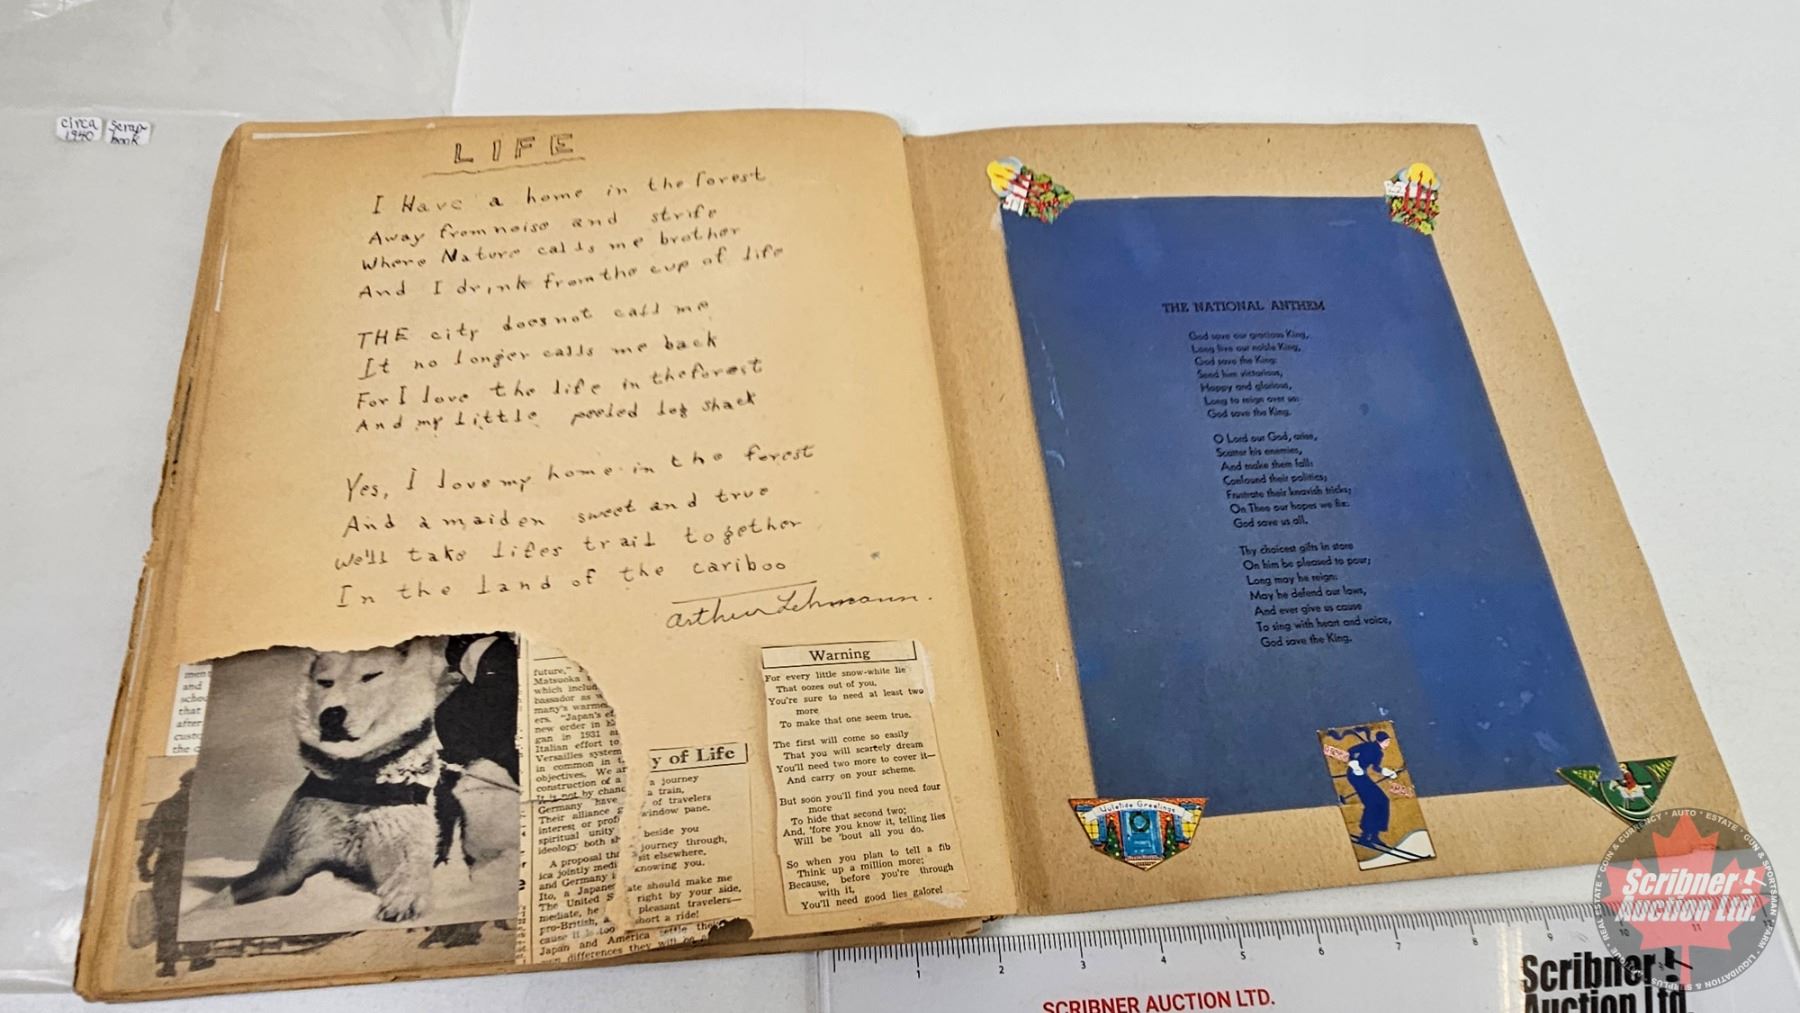 circa
1940
scrap-
book
LIFE
I Have a home in the forest
Away from noise and strife
Where Nature calls me brother
And I drink from the cup of life
THE city does not call me
It no longer calls me back
For I love the life in the forest
And my little peeled log shack
Yes, I love my home in the forest
And a maiden sweet and true
We'll take lifes trail together
In the land of the cariboo
Arthur Lehmann.
men
and
schoo
that
after
custo
the c
future,"
Matsuoka
which includ
bassador as w
many's warmes
ers. "Japan's ef
new order in
gan in 1931 a
Italian effort to
Versailles system
in common in t
objectives. We ar
construction of a
It is not by chanc
Germany have
Their alliance
interest or profi
spiritual unity
ideology both sh
A proposal tha
ica jointly medi
and Germany
Ito, a Japanes
The United S
mediate, he
pro-British, a
cause it is too
Japan and America settle their
own differences they will
y of Life
a journey
a train,
of travelers
window pane.
beside you
journey through,
sit elsewhere,
knowing you.
ate should make me
right by your side,
pleasant travelers—
short a ride!
Warning
For every little snow-white lie
That oozes out of you,
You're sure to need at least two
more
To make that one seem true.
The first will come so easily
That you will scarcely dream
You'll need two more to cover it—
And carry on your scheme.
But soon you'll find you need four
more
To hide that second two;
And, 'fore you know it, telling lies
Will be 'bout all you do.
So when you plan to tell a fib
Think up a million more;
Because, before you're through
with it,
You'll need good lies galore!
THE NATIONAL ANTHEM
God save our gracious King,
Long live our noble King,
God save the King:
Send him victorious,
Happy and glorious,
Long to reign over us:
God save the King.
O Lord our God, arise,
Scatter his enemies,
And make them fall:
Confound their politics;
Frustrate their knavish tricks;
On Thee our hopes we fix:
God save us all.
Thy choicest gifts in store
On him be pleased to pour;
Long may he reign:
May he defend our laws,
And ever give us cause
To sing with heart and voice,
God save the King.
Yuletide Greetings
MERRY XMAS
1 2 3 4 5 6 7 8 9 10 11
SCRIBNER AUCTION LTD.
Scribner
Auction Ltd.
Scribner
Auction Ltd.
COIN & CURRENCY · AUTO · ESTATE · GUN & SPORTSMAN · FARM · LIQUIDATION & SURPLUS · ANTIQUE · REAL ESTATE